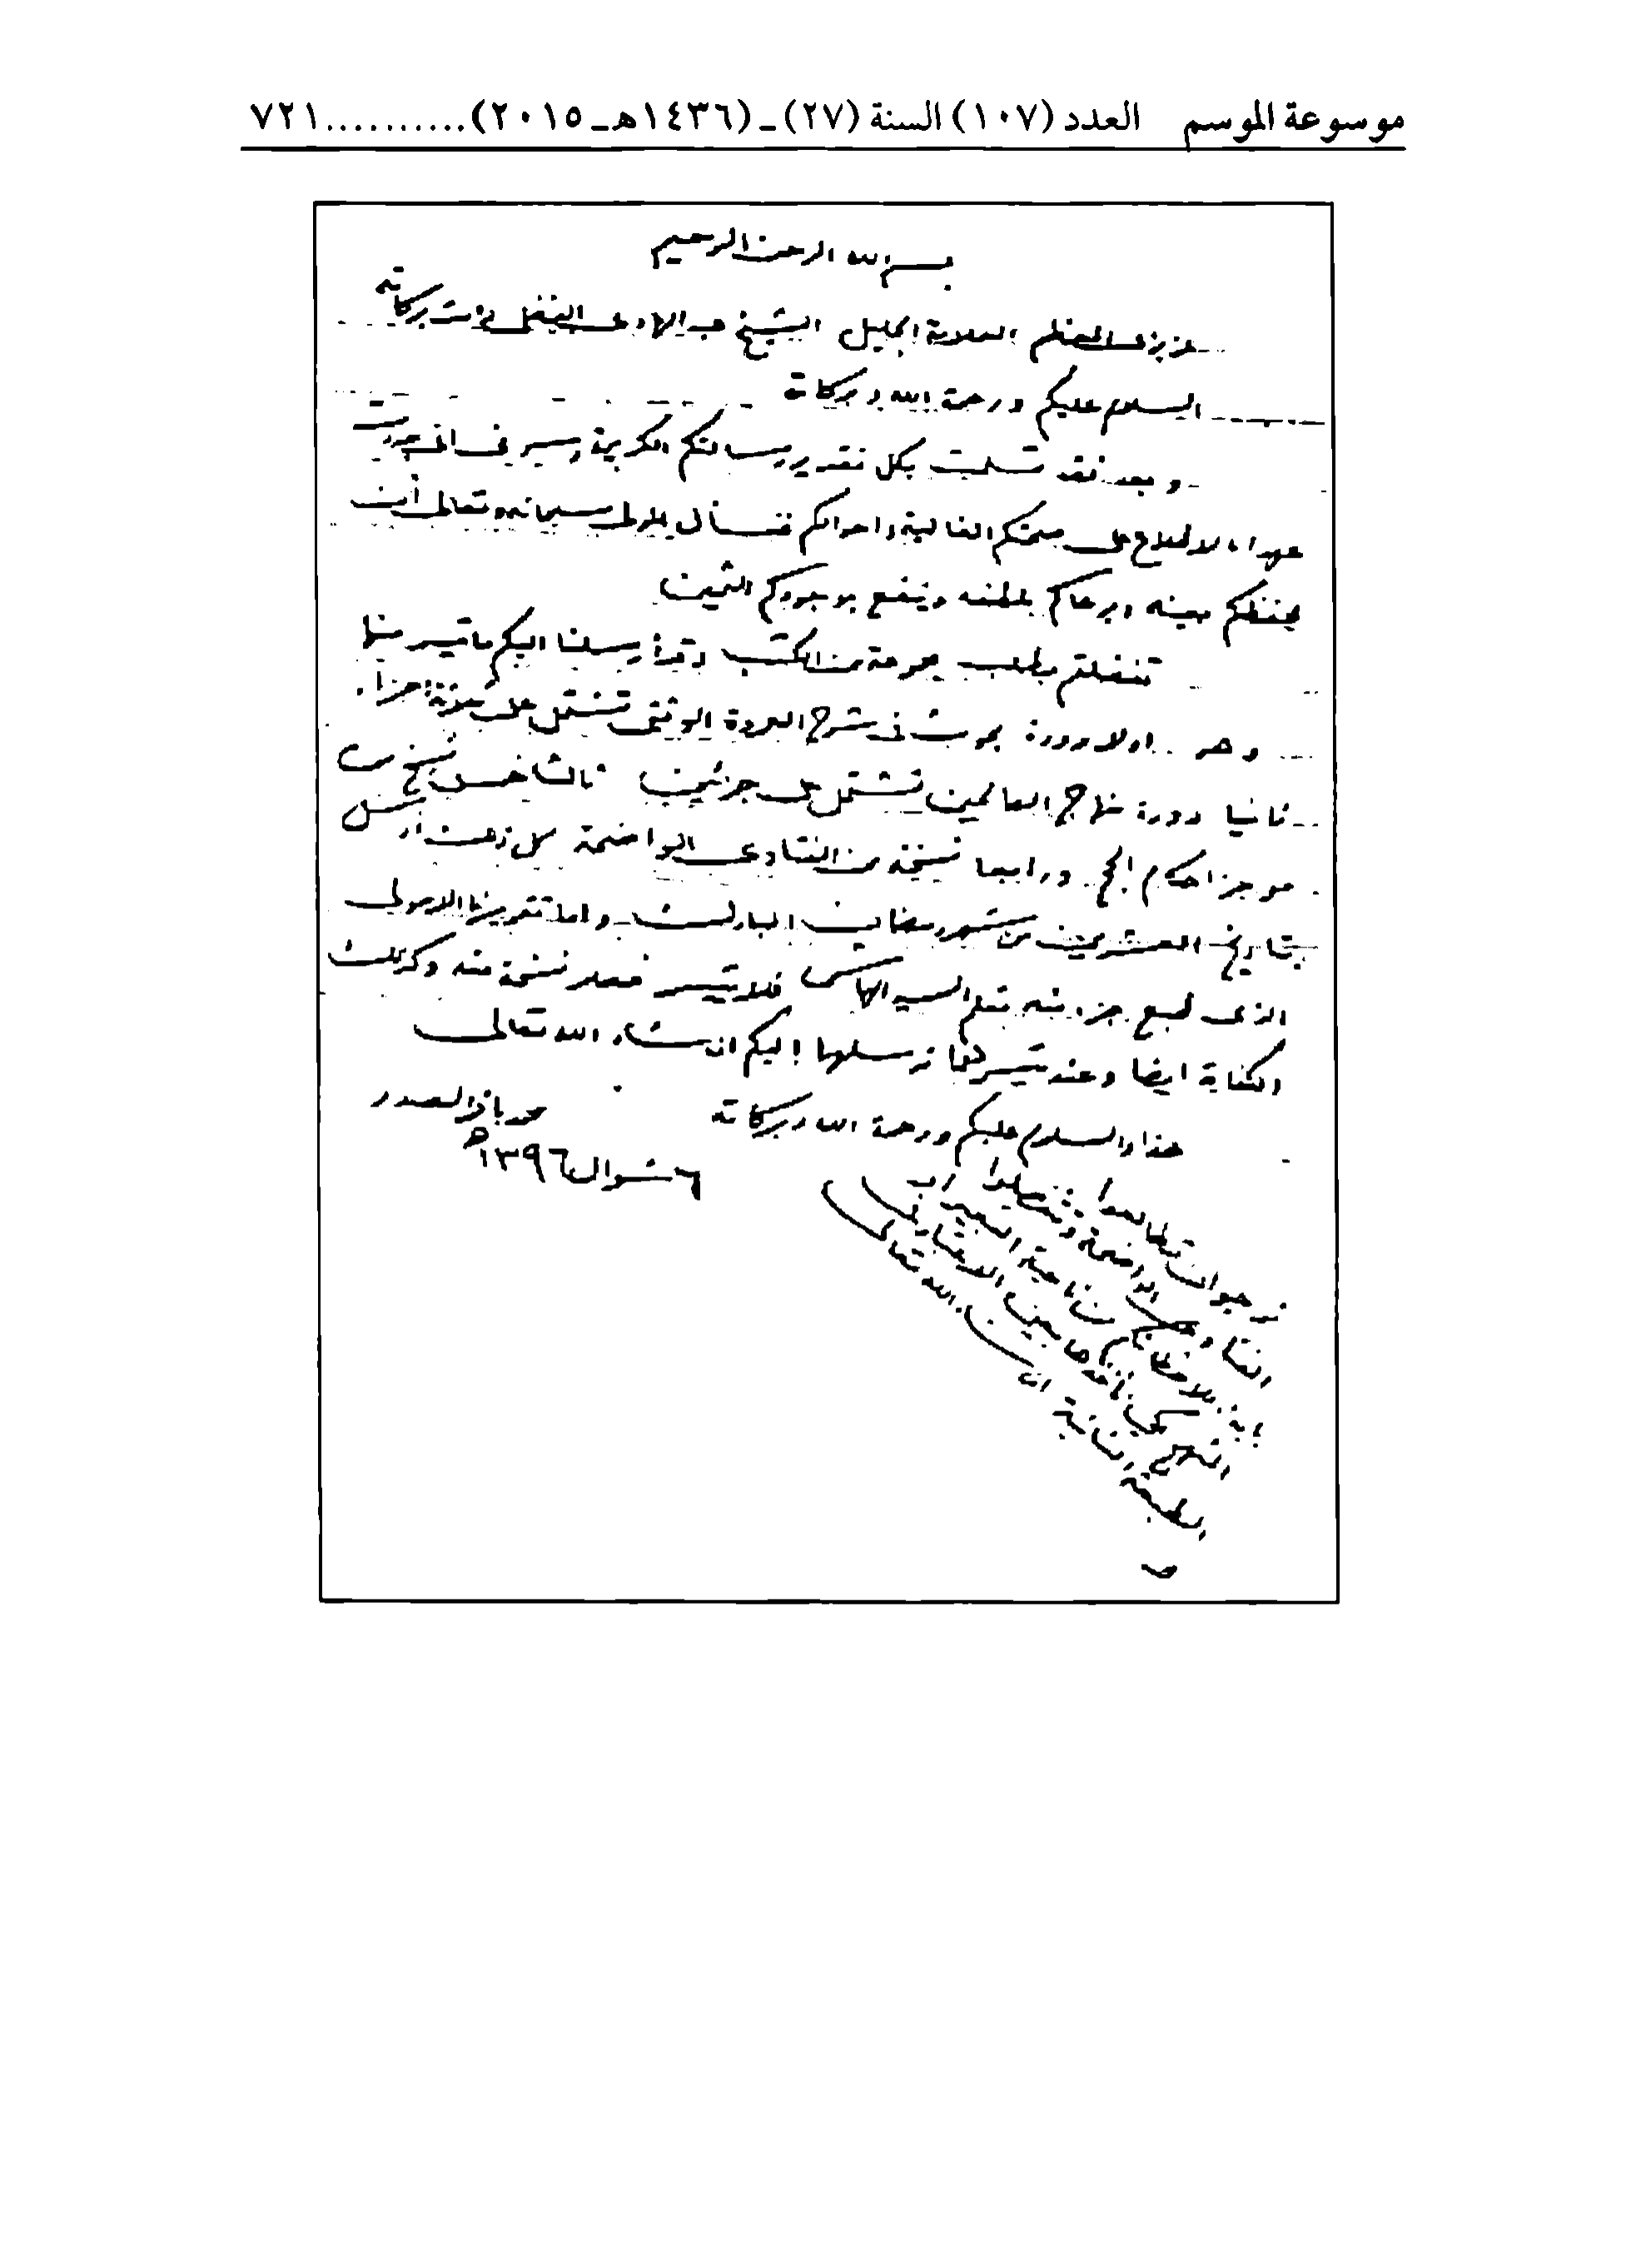 موسوعة الموسم العدد (١٠٧) السنة (٢٧) ـ (١٤٣٦هـ ـ ٢٠١٥)..........٧٢١
بسم الله الرحمن الرحيم
عزيزي المعظم العلامة الجليل الشيخ عبد الهادي الفضلي دامت بركاته
السلام عليكم ورحمة الله وبركاته
وبعد فقد تسلمت بكل تقدير رسالتكم الكريمة وسرني اني جددت
عهدا بالاطلاع على صحتكم الغالية واحوالكم فنسأل المولى سبحانه وتعالى أن
يحفظكم بعينه ويرعاكم بلطفه وينفع بوجودكم الثمين
تفضلتم بطلب مجموعة من الكتب وقد أرسلنا اليكم ما تيسر منها
وهو اولا دورة بحوث في شرح العروة الوثقى تشتمل على ثلاثة اجزاء
ثانيا دورة منهاج الصالحين تشتمل على جزئين ثالثا خمس نسخ من
موجز احكام الحج ورابعا نسخة من الفتاوى الواضحة كل ذلك ارسل
بتاريخ العشرين من شهر رمضان المبارك واما تقريرنا الاصولي
الذي طبع جزء منه بقلم السيد الهاشمي فلا تتيسر فعلا نسخة منه وكذلك
الكفاية ايضا وعند تيسرهما نرسلها إليكم ان شاء الله تعالى
هذا والسلام عليكم ورحمة الله وبركاته
محمد باقر الصدر
٦ شوال ١٣٩٦هـ
نرجو ان تطالعوا
الفتاوى الواضحة وتتفضلوا
بملاحظاتكم من ناحية التعبير
لكي نأخذها بعين الاعتبار في
الطبعة الثانية ان شاء الله تعالى